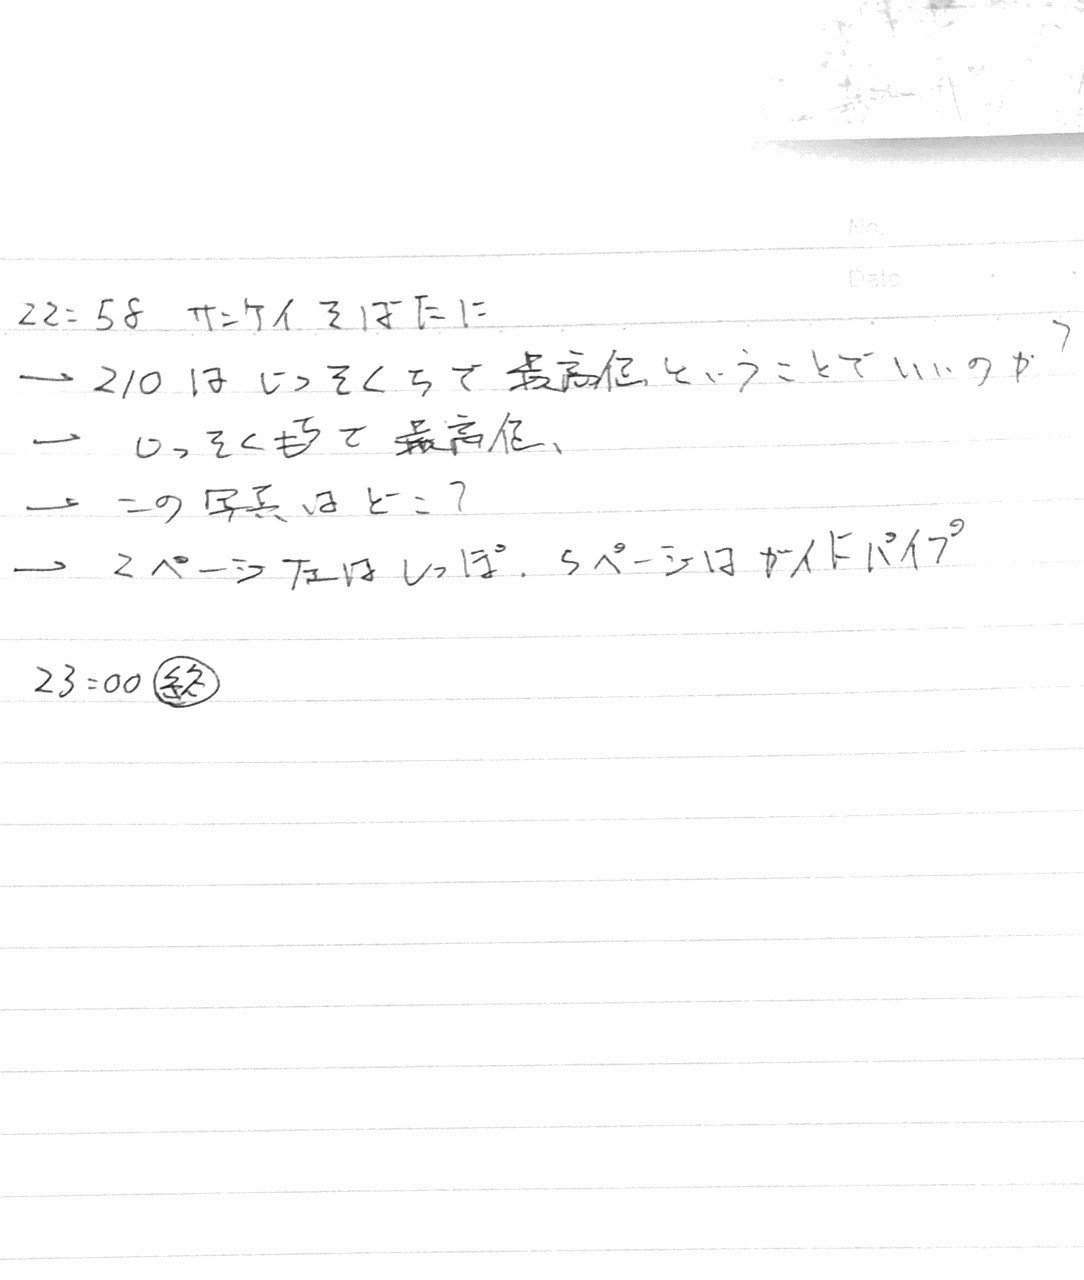 No.
Date
22:58 サンケイ そばたに
→ 210 は じっそくちで 最高値 ということでいいのか?
→ じっそくちで 最高値、
→ この写真はどこ?
→ 2ページ左はしっぽ. 5ページはガイドパイプ
23:00 終